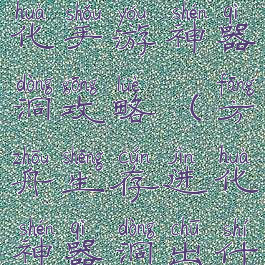 huà shǒu yóu shén qì
化手游神器
dòng gōng lüè fāng
洞攻略（方
zhōu shēng cún jìn huà
舟生存进化
shén qì dòng chū shí
神器洞出什